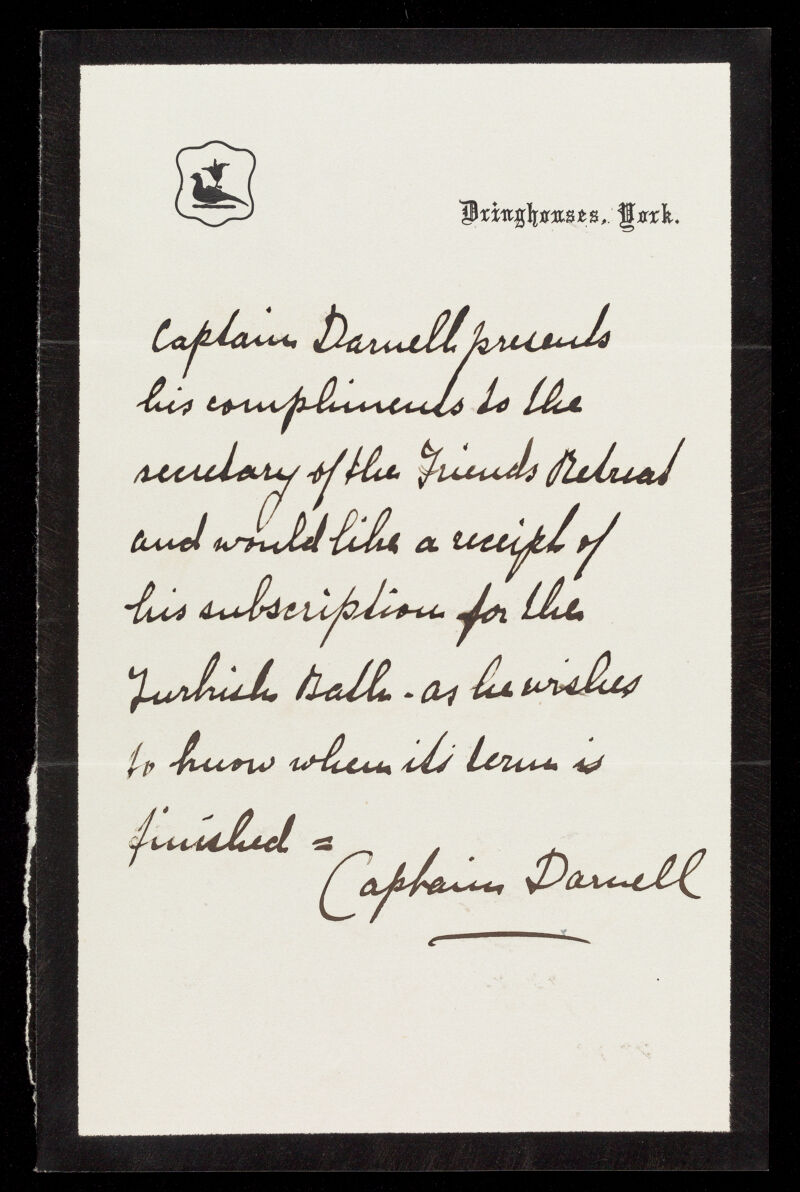 Dringhouses, York.
Captain Darnell presents
his compliments to the
secretary of the Friends Retreat
and would like a receipt of
his subscription for the
Turkish Bath - as he wishes
to know when its term is
finished =
Captain Darnell